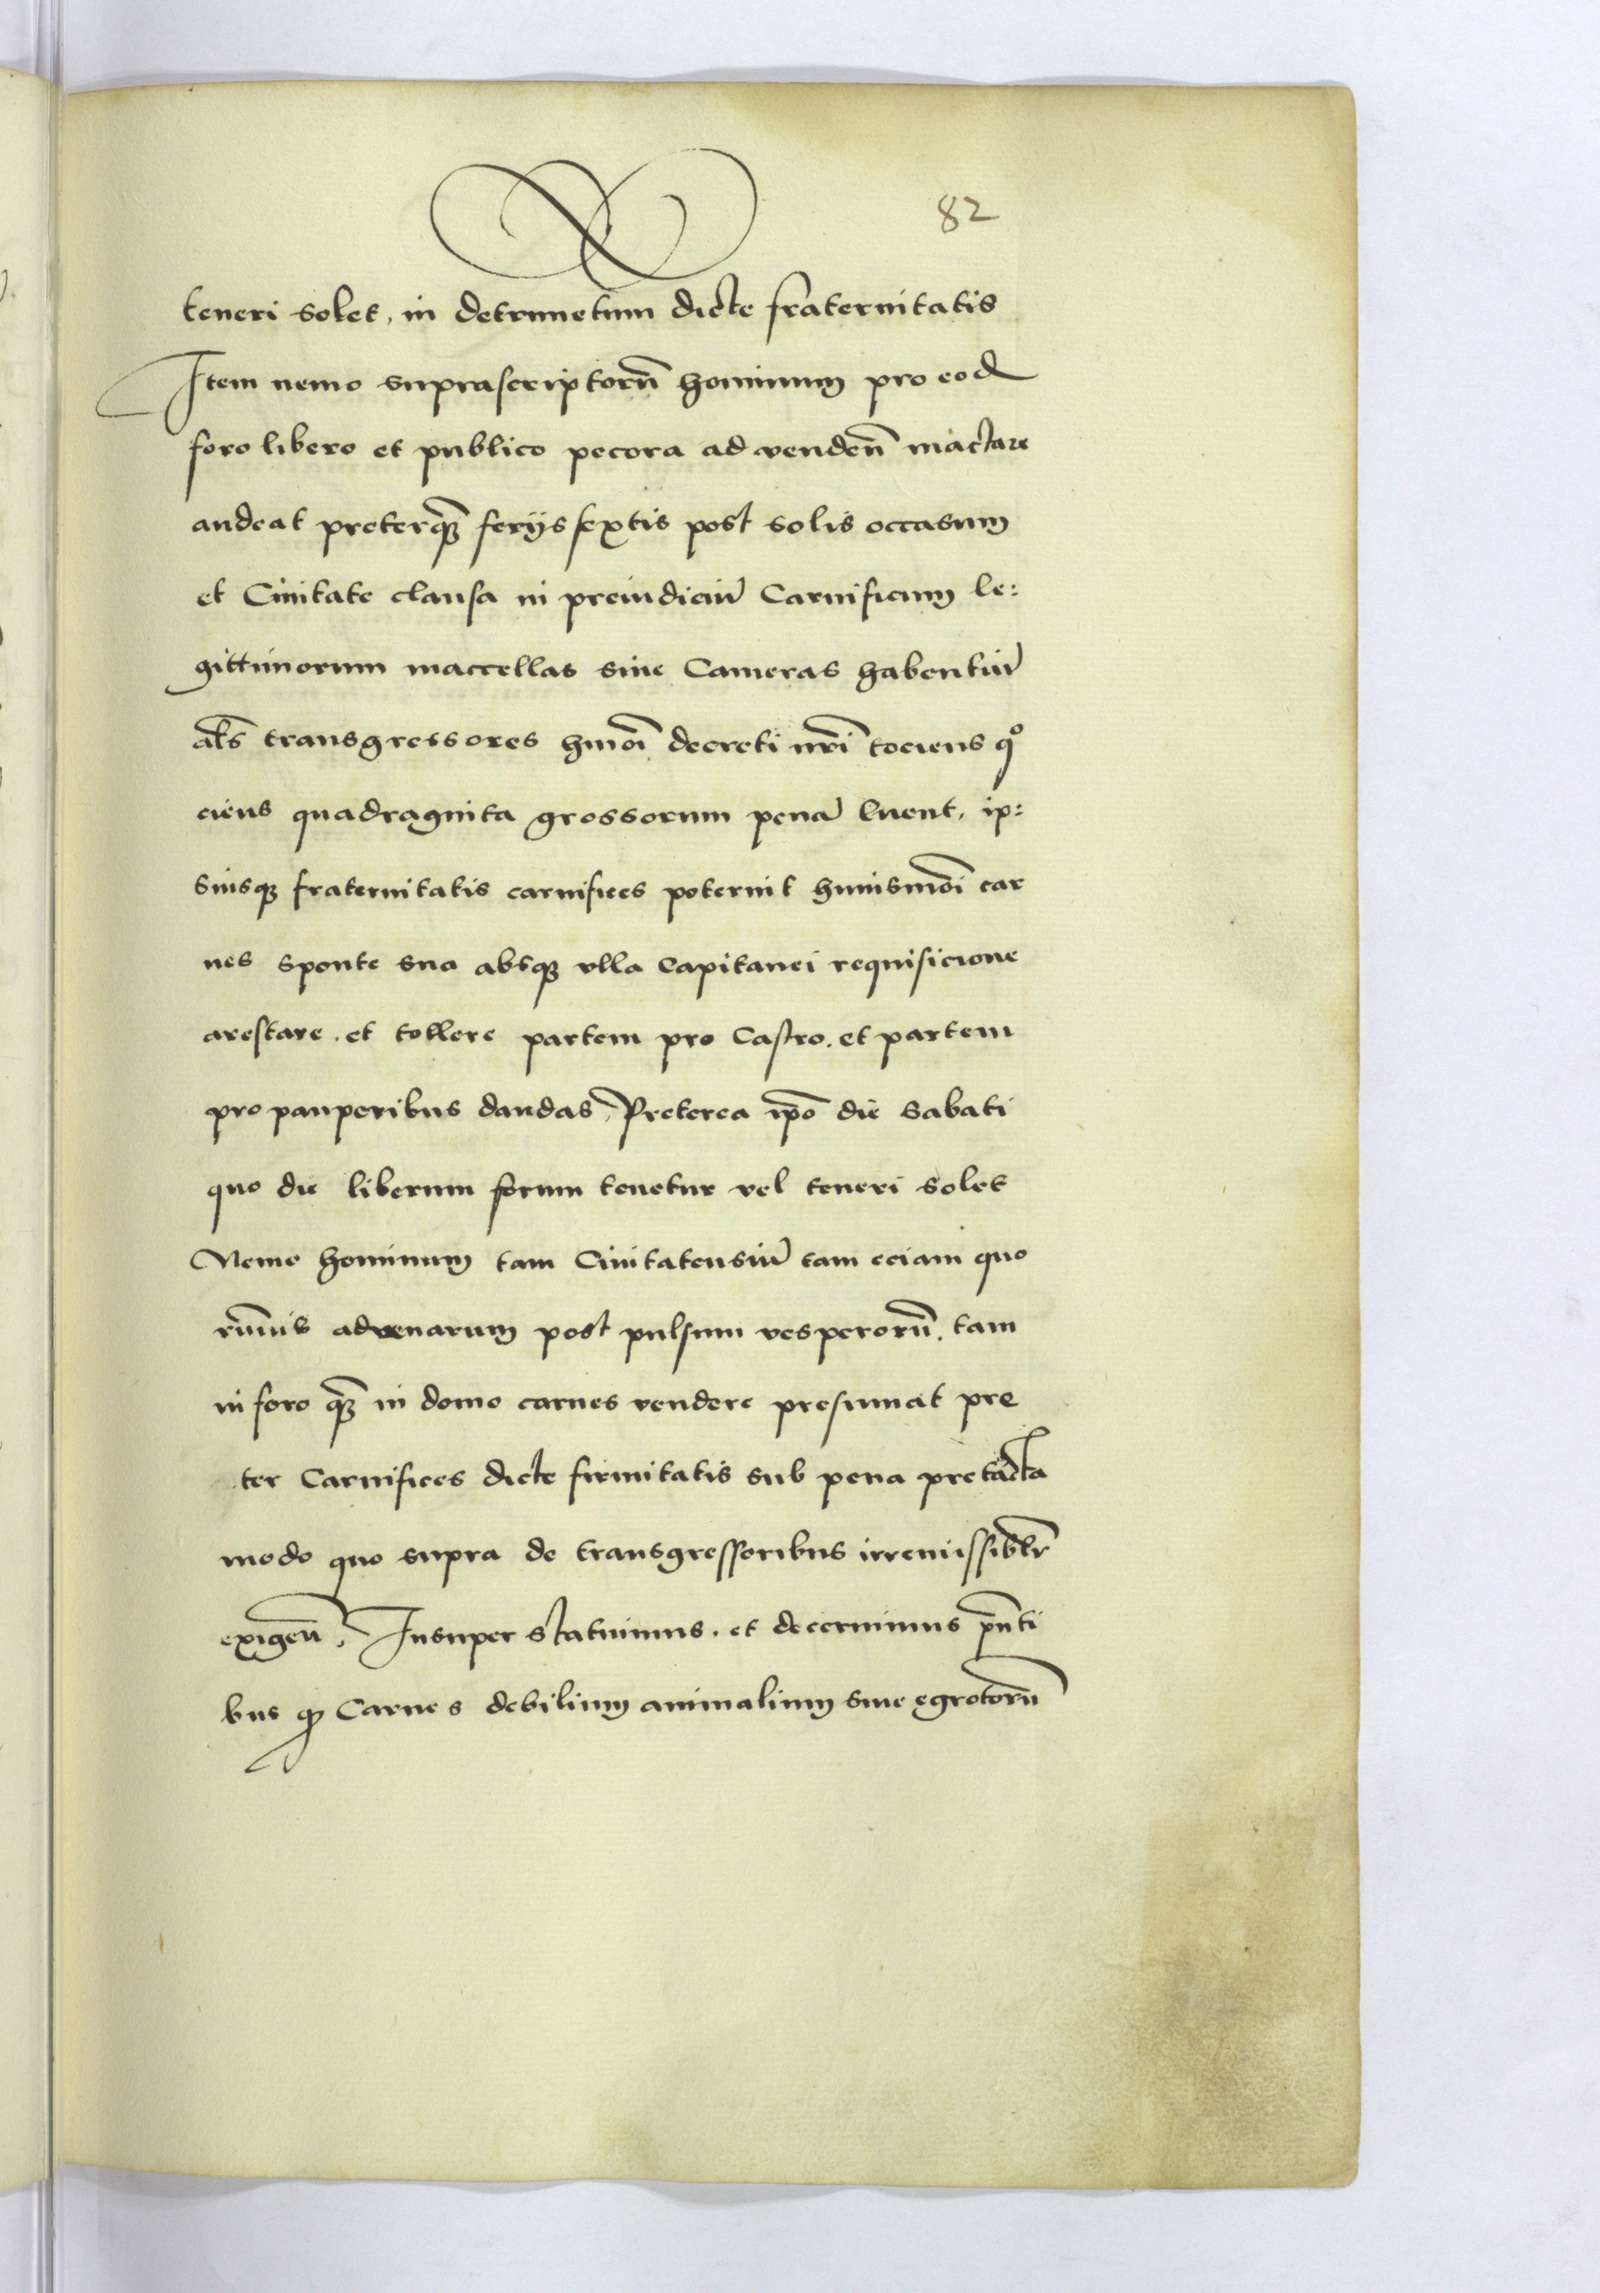 82
teneri solet, in detrimetum dicte fraternitatis
Item nemo suprascriptorū hominum pro eod
foro libero et publico pecora ad vendeñ mactare
audeat preterq̄ȝ feriis sextis post solis occasum
et Civitate clausa in preiudiciū Carnificum le:
gittimorum maccellas sive Cameras habentiū
al̄s transgressores hmōi decreti nr̄i tociens qͦ
ciens quadraginta grossorum penā luent, ip:
siusqȝ fraternitatis carnifices poterūt huiusmōi car
nes sponte sua absqȝ ulla Capitanei requisicione
arestare. et tollere partem pro Castro. et partem
pro pauperibus dandas, Preterea ip̄o die Sabati
quo die liberum forum tenetur vel teneri solet
Nemo hominum tam Civitatensiū tam eciam quo
rūvis advenarum post pulsum vesperorū. tam
in foro q̄ȝ in domo carnes vendere presumat pre
ter Carnifices dicte firmitatis sub pena pretacta
modo quo supra de transgressoribus irremissiblr̄
exigeñ, Insuper statuimus. et decernimus pn̄ti
bus qȝ Carnes debilium animalium sive egrotorū